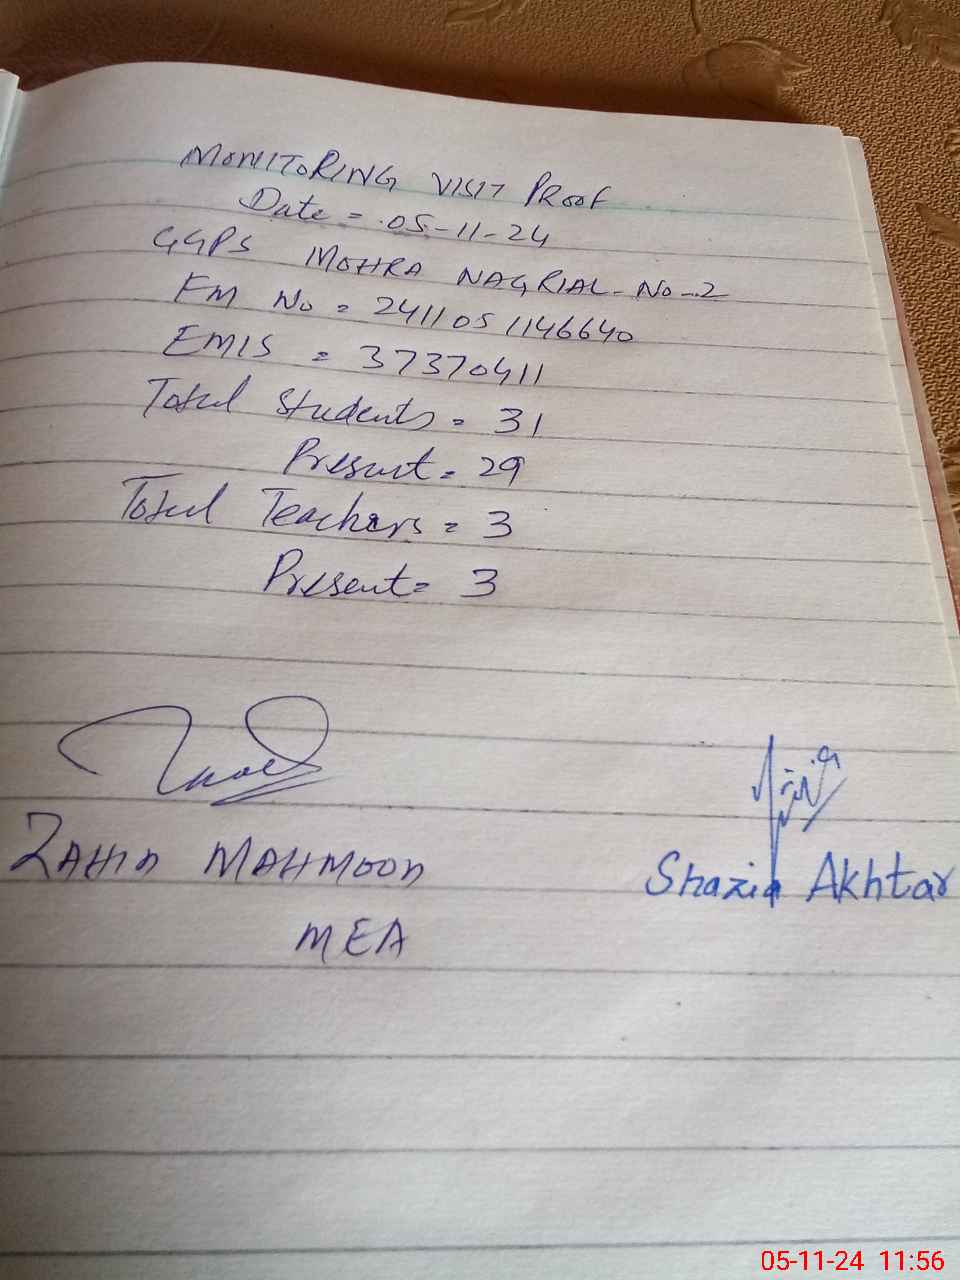 MONITORING VISIT PROOF
Date = 05-11-24
GGPS MOHRA NAGRIAL No-2
FM No = 2411051146640
EMIS = 37370411
Total Students = 31
Present = 29
Total Teachers = 3
Present = 3
ZAHID MAHMOOD
Shazia Akhtar
MEA
05-11-24 11:56